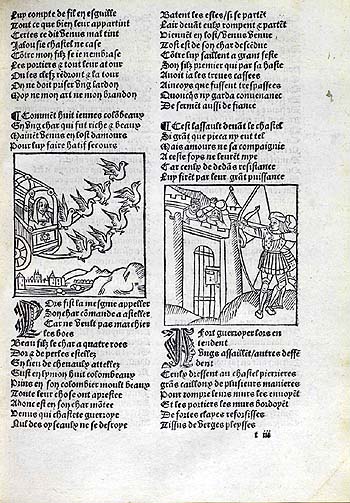 Luy compte de fil en esguille
Tout ce que bien leur appartint
Certes ce dit Venus mal tint
Jalousie chastel ne case
Côtre mon filz se ie nembrase
Les portiers & tout leur atour
Ou les clefz rêdront & la tour
On ne doit priser vng lardon
Moy ne mon arc ne mon brandon
¶ Commêt huit ieunes colôbeaux
En vng char qui fut riche & beaux
Mainêt Venus en lost damours
Pour luy faire hatif secours
Lors fist la mesgnie appeller
Son char cômande a asteller
Car ne veult pas marchier
les boes
Beau fut le char a quatre roes
Dor & de perles estellez
En lieu de cheuaulx attellez
Eust en lymon huit colombeaux
Prins en son colombier moult beaux
Toute leur chose ont aprestee
Adonc est en son char môtee
Venus qui chastete guerroye
Nul des oyseaulx ne se desroye
Batent les esles/si se partêt
Lair deuât eulx rompent & partêt
Viennent en lost/Venus venue
Tost est de son char descêdue
Côtre luy saillent a grant feste
Son filz premier qui par sa haste
Auoit ia les trieues cassees
Aincoys que fussent trespassees
Quoncques ny garda conuenance
De serment aussi de fiance
¶ Cest lassault deuât le chastel
Si grât que pieca ny eut tel
Mais amours ne sa compaignie
A ceste foys ne leurêt mye
Car ceulx de dedâs resistance
Luy firêt par leur grât puissance
Fort guerroyer lors en
tendent
Vngs assaillêt/autres deffê
dent
Ceulx dressent au chastel pierrieres
grâs caillouy de plusieurs manieres
Pour rompre leurs murs les enuoyêt
Et les portiers les murs hordoyêt
De fortes clayes reforsisses
Tissus de verges pleysses
t iii